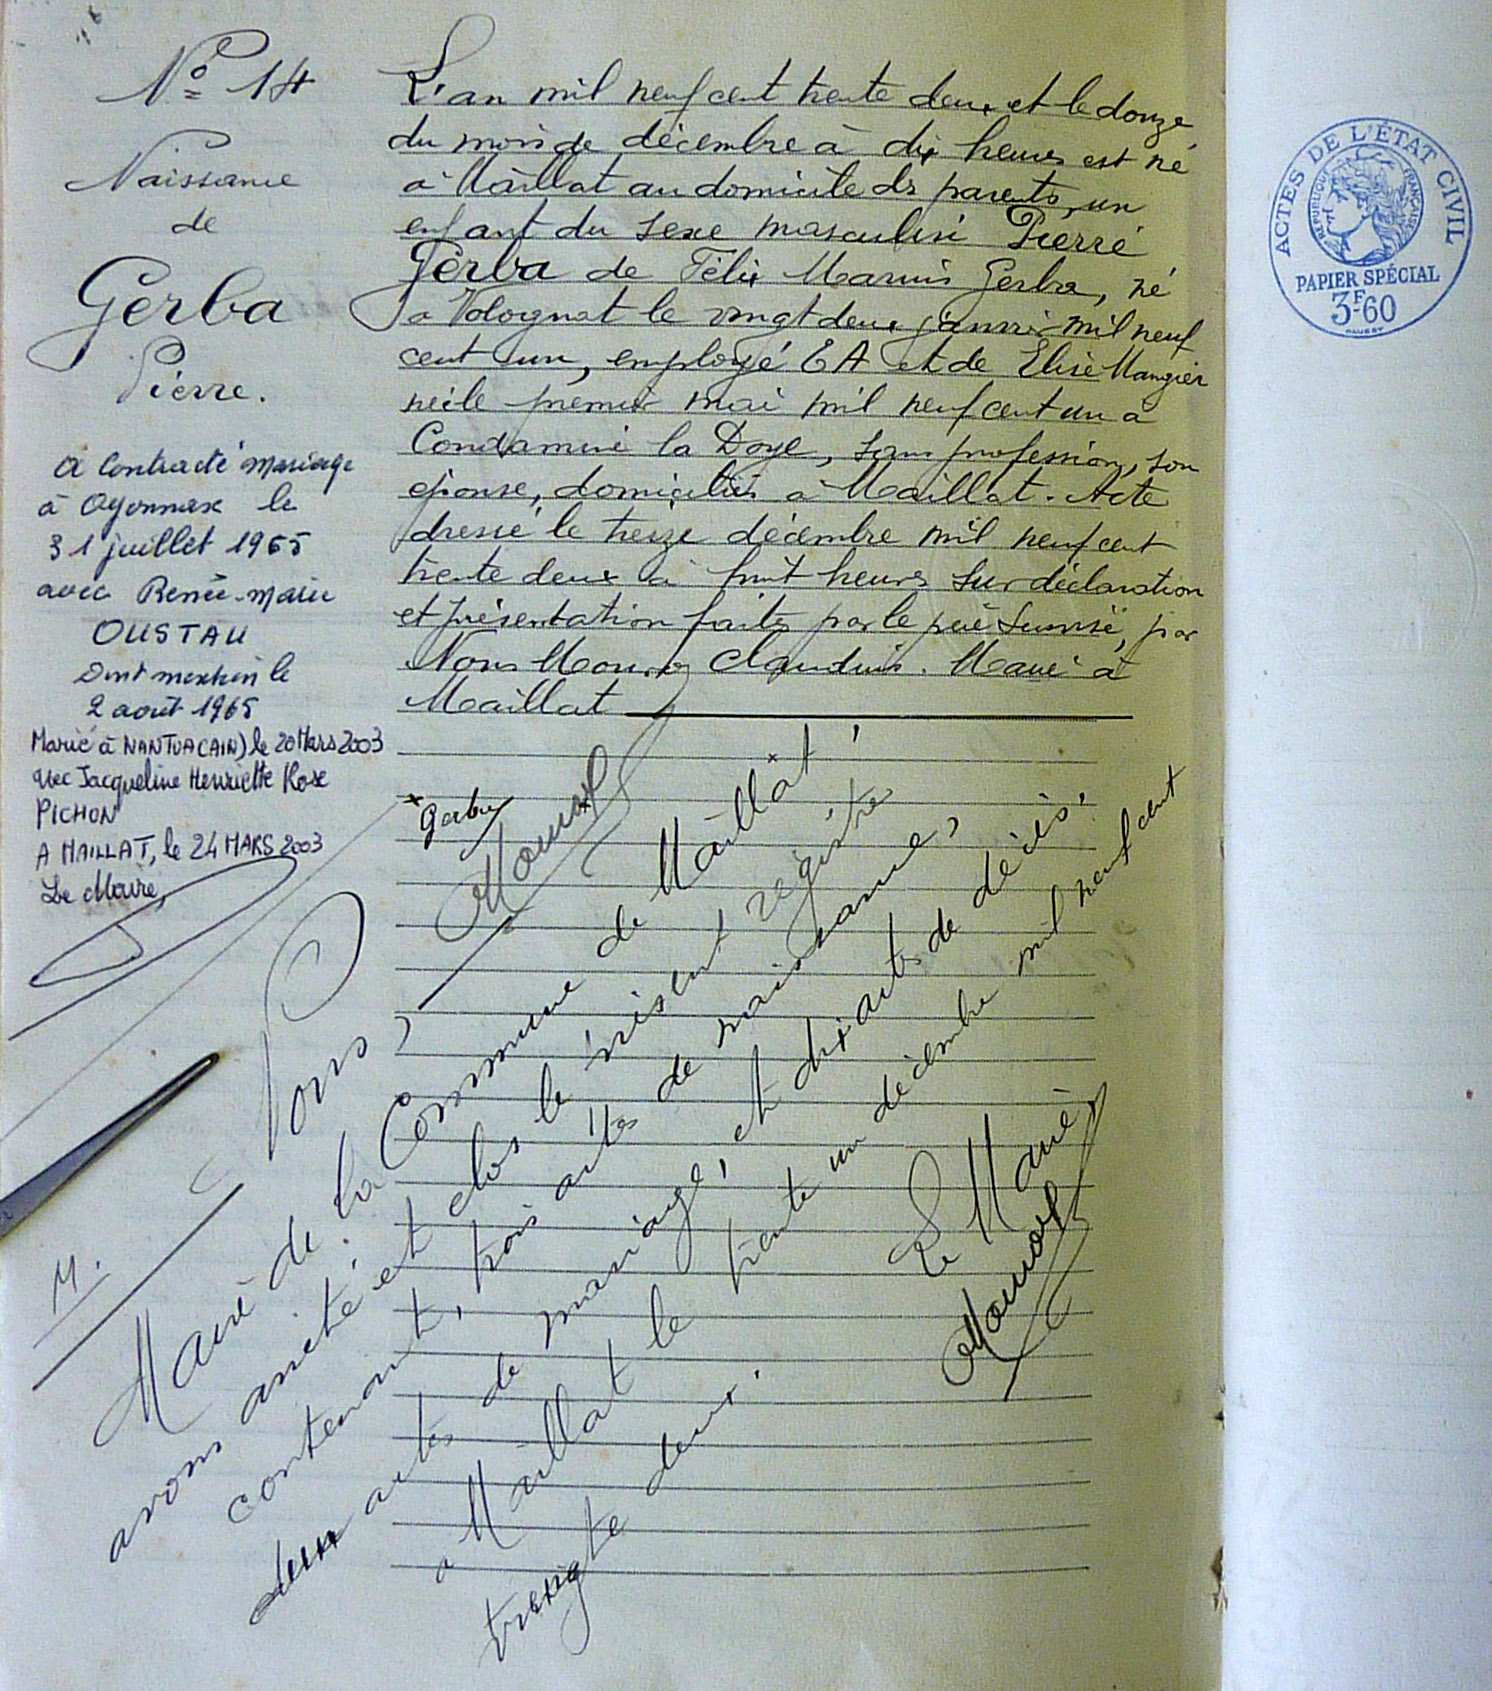 N° 14
Naissance
de
Gerba
Pierre.
a Contracté mariage
à Oyonnax le
31 juillet 1965
avec Renée-Marie
OUSTAU
Dont mention le
2 août 1965
Marié à NANTUA (AIN) le 20 Mars 2003
avec Jacqueline Henriette Rose
PICHON
A MAILLAT, le 24 MARS 2003
Le Maire,
L'an mil neuf cent trente deux et le douze
du mois de décembre à dix heures est né
à Maillat au domicile ds parents, un
enfant du sexe masculin Pierre
Gerba de Félix Marius Gerba, né
a Volognat le vingt deux janvier mil neuf
cent un, employé EA et de Elise Mangier
née le premier mai mil neuf cent un a
Condamine la Doye, sans profession, son
épouse, domiciliés à Maillat. Acte
dressé le treize décembre mil neuf cent
trente deux à huit heures sur déclaration
et présentation faites par le père susvisé, par
Nous Claudius. Maire à
Maillat
Gerba
Nous,
Maire de la Commune de Maillat
avons arreté et clos le présent registre
contenant, trois actes de naissance,
deux actes de mariage, et dix actes de décès,
a Maillat le trente un décembre mil neuf cent
trente deux.
Le Maire
M.
ACTES DE L'ÉTAT CIVIL
RÉPUBLIQUE FRANÇAISE
PAPIER SPÉCIAL
3F-60